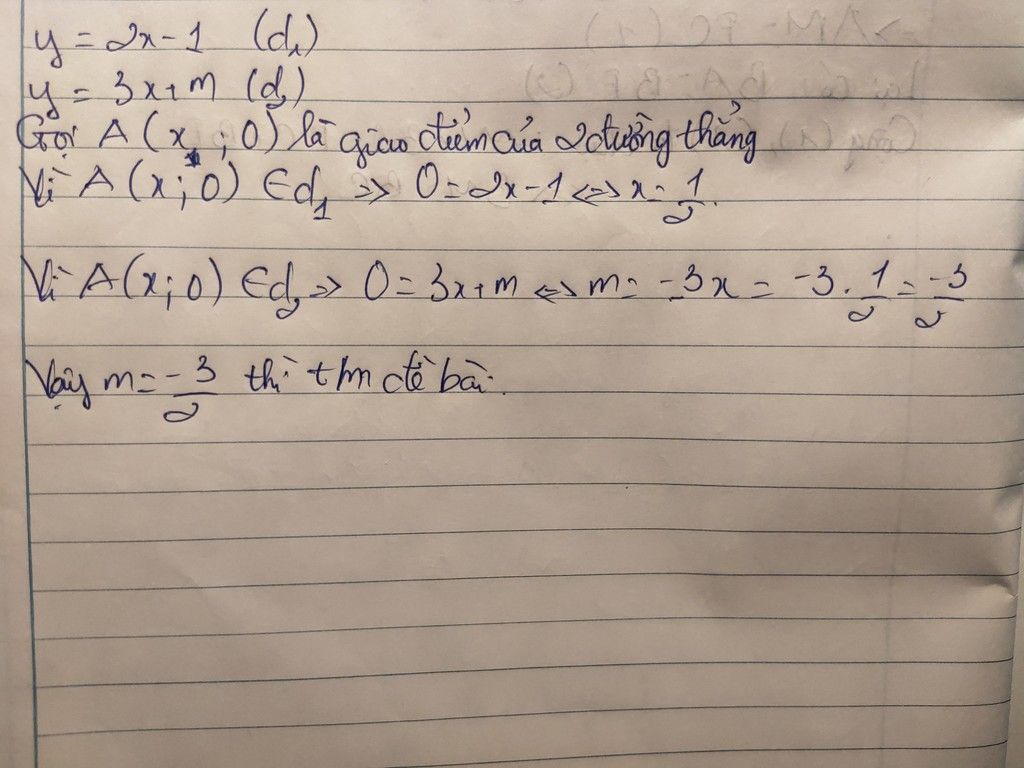 y = 2x - 1 (d₁)
y = 3x + m (d₂)
Gọi A (x ; 0) là giao điểm của 2 đường thẳng
Vì A (x ; 0) ∈ d₁ => 0 = 2x - 1 <=> x = 1/2.
Vì A (x ; 0) ∈ d₂ => 0 = 3x + m <=> m = -3x = -3 . 1/2 = -3/2
Vậy m = -3/2 thì t/m đề bài.